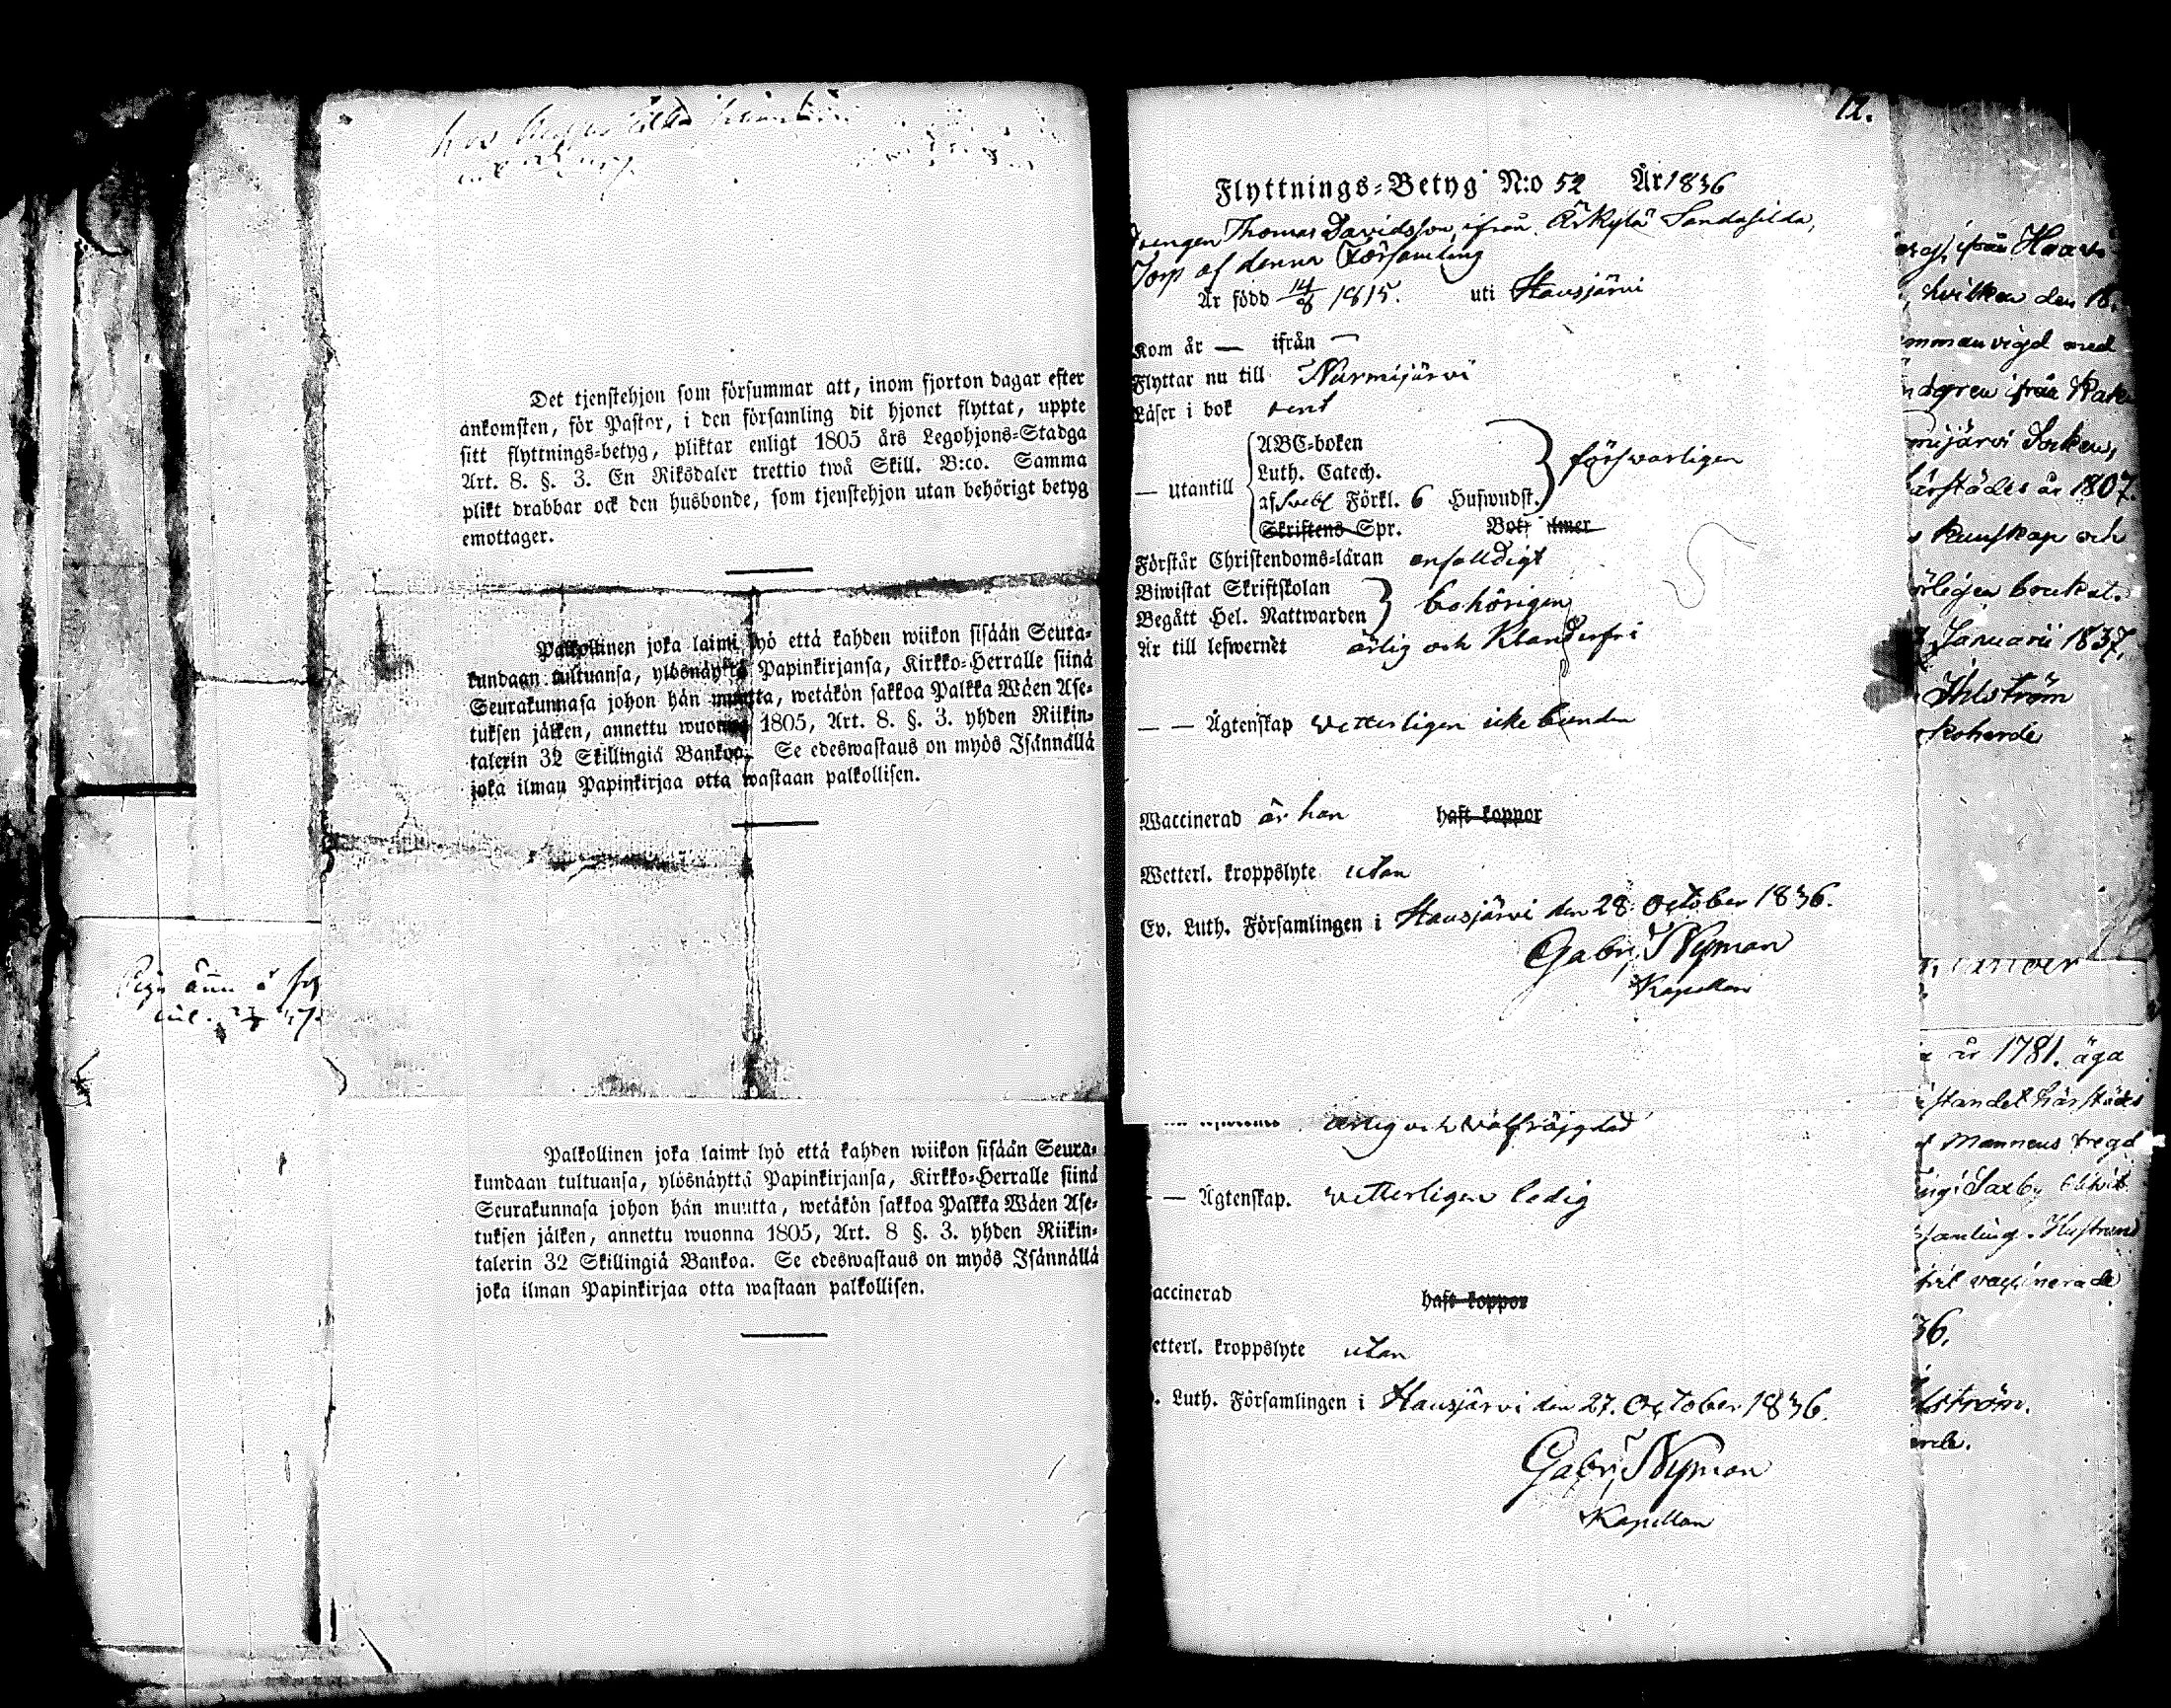 Det tjenstehjon som försummar att, inom fjorton dagar efter
ankomsten, för Pastor, i den församling dit hjonet flyttat, uppte
sitt flyttnings-betyg, pliktar enligt 1805 års Legohjons-Stadga
Art. 8. §. 3. En Riksdaler trettio twå Skill. B:co. Samma
plikt drabbar ock den husbonde, som tjenstehjon utan behörigt betyg
emottager.
Palkollinen joka laimi lyö että kahden wiikon sisään Seura-
kundaan tultuansa, ylösnäyttä Papinkirjansa, Kirkko-Herralle siinä
Seurakunnasa johon hän muutta, wetäkön sakkoa Palkka Wäen Ase-
tuksen jälken, annettu wuonna 1805, Art. 8. §. 3. yhden Riikin-
talerin 32 Skillingiä Bankoa. Se edeswastaus on myös Isännällä
joka ilman Papinkirjaa otta wastaan palkollisen.
Palkollinen joka laimi lyö että kahden wiikon sisään Seura-
kundaan tultuansa, ylösnäyttä Papinkirjansa, Kirkko-Herralle siinä
Seurakunnasa johon hän muutta, wetäkön sakkoa Palkka Wäen Ase-
tuksen jälken, annettu wuonna 1805, Art. 8 §. 3. yhden Riikin-
talerin 32 Skillingiä Bankoa. Se edeswastaus on myös Isännällä
joka ilman Papinkirjaa otta wastaan palkollisen.
12.
Flyttnings-Betyg N:o 52 År 1836
Drengen Thomas Davidsson ifrån Erkylä
Torp af denna Församling
Är född 14/8 1815. uti Hausjärvi
Kom år — ifrån —
Flyttar nu till Nurmijärvi
Läser i bok rent
— utantill
ABC-boken
Luth. Catech.
af Svebl Förkl. 6 Hufwudst. försvarligen
Skriftens Spr.
Förstår Christendoms-läran enfalldigt
Biwistat Skriftskolan
Begått Hel. Nattwarden behörigen
Är till lefwernet ärlig och Klanderfri
— — Ägtenskap vetterligen icke bunden
Waccinerad är han haft koppor
Wetterl. kroppslyte utan
Ev. Luth. Församlingen i Hausjärvi den 28 October 1836.
Gabr. Nyman
Kapellan
ärlig och välfräjdad
— — Ägtenskap. vetterligen ledig
accinerad haft koppor
etterl. kroppslyte utan
. Luth. Församlingen i Hausjärvi den 27. October 1836.
Gabr. Nyman
Kapellan
ifrån
hvilken den 18.
mman vigd med
dgren ifrån
mijärvi Socken,
härstädes år 1807.
kunskap och
brukat.
Januarii 1837.
Ahlström
koherde
år 1781. äga
ståndet härstädes
Mannens
Hustrun
vaccinerade
36.
lström.